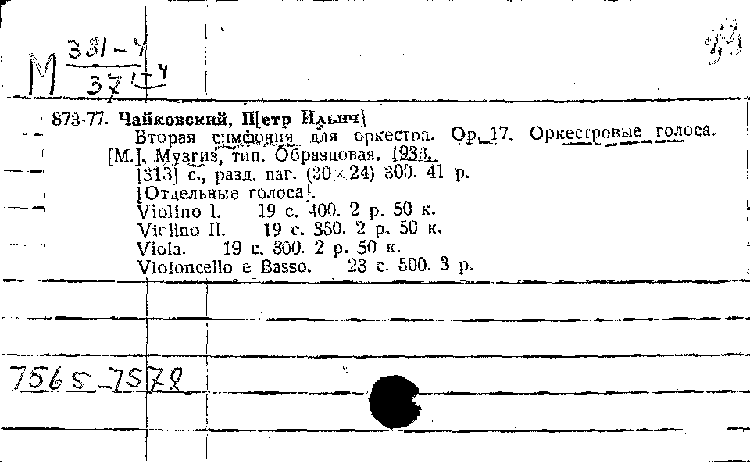 М 331-4
37 1-4
873-77. Чайковский, П[етр Ильич]
Вторая симфония для оркестра. Op. 17. Оркестровые голоса.
[М.], Музгиз, тип. Образцовая, 1933.
[313] с., разд. паг. (30×24) 300. 41 р.
[Отдельные голоса].
Violino I. 19 с. 400. 2 р. 50 к.
Violino II. 19 с. 350. 2 р. 50 к.
Viola. 19 с. 300. 2 р. 50 к.
Violoncello e Basso. 23 с. 500. 3 р.
7565-7578